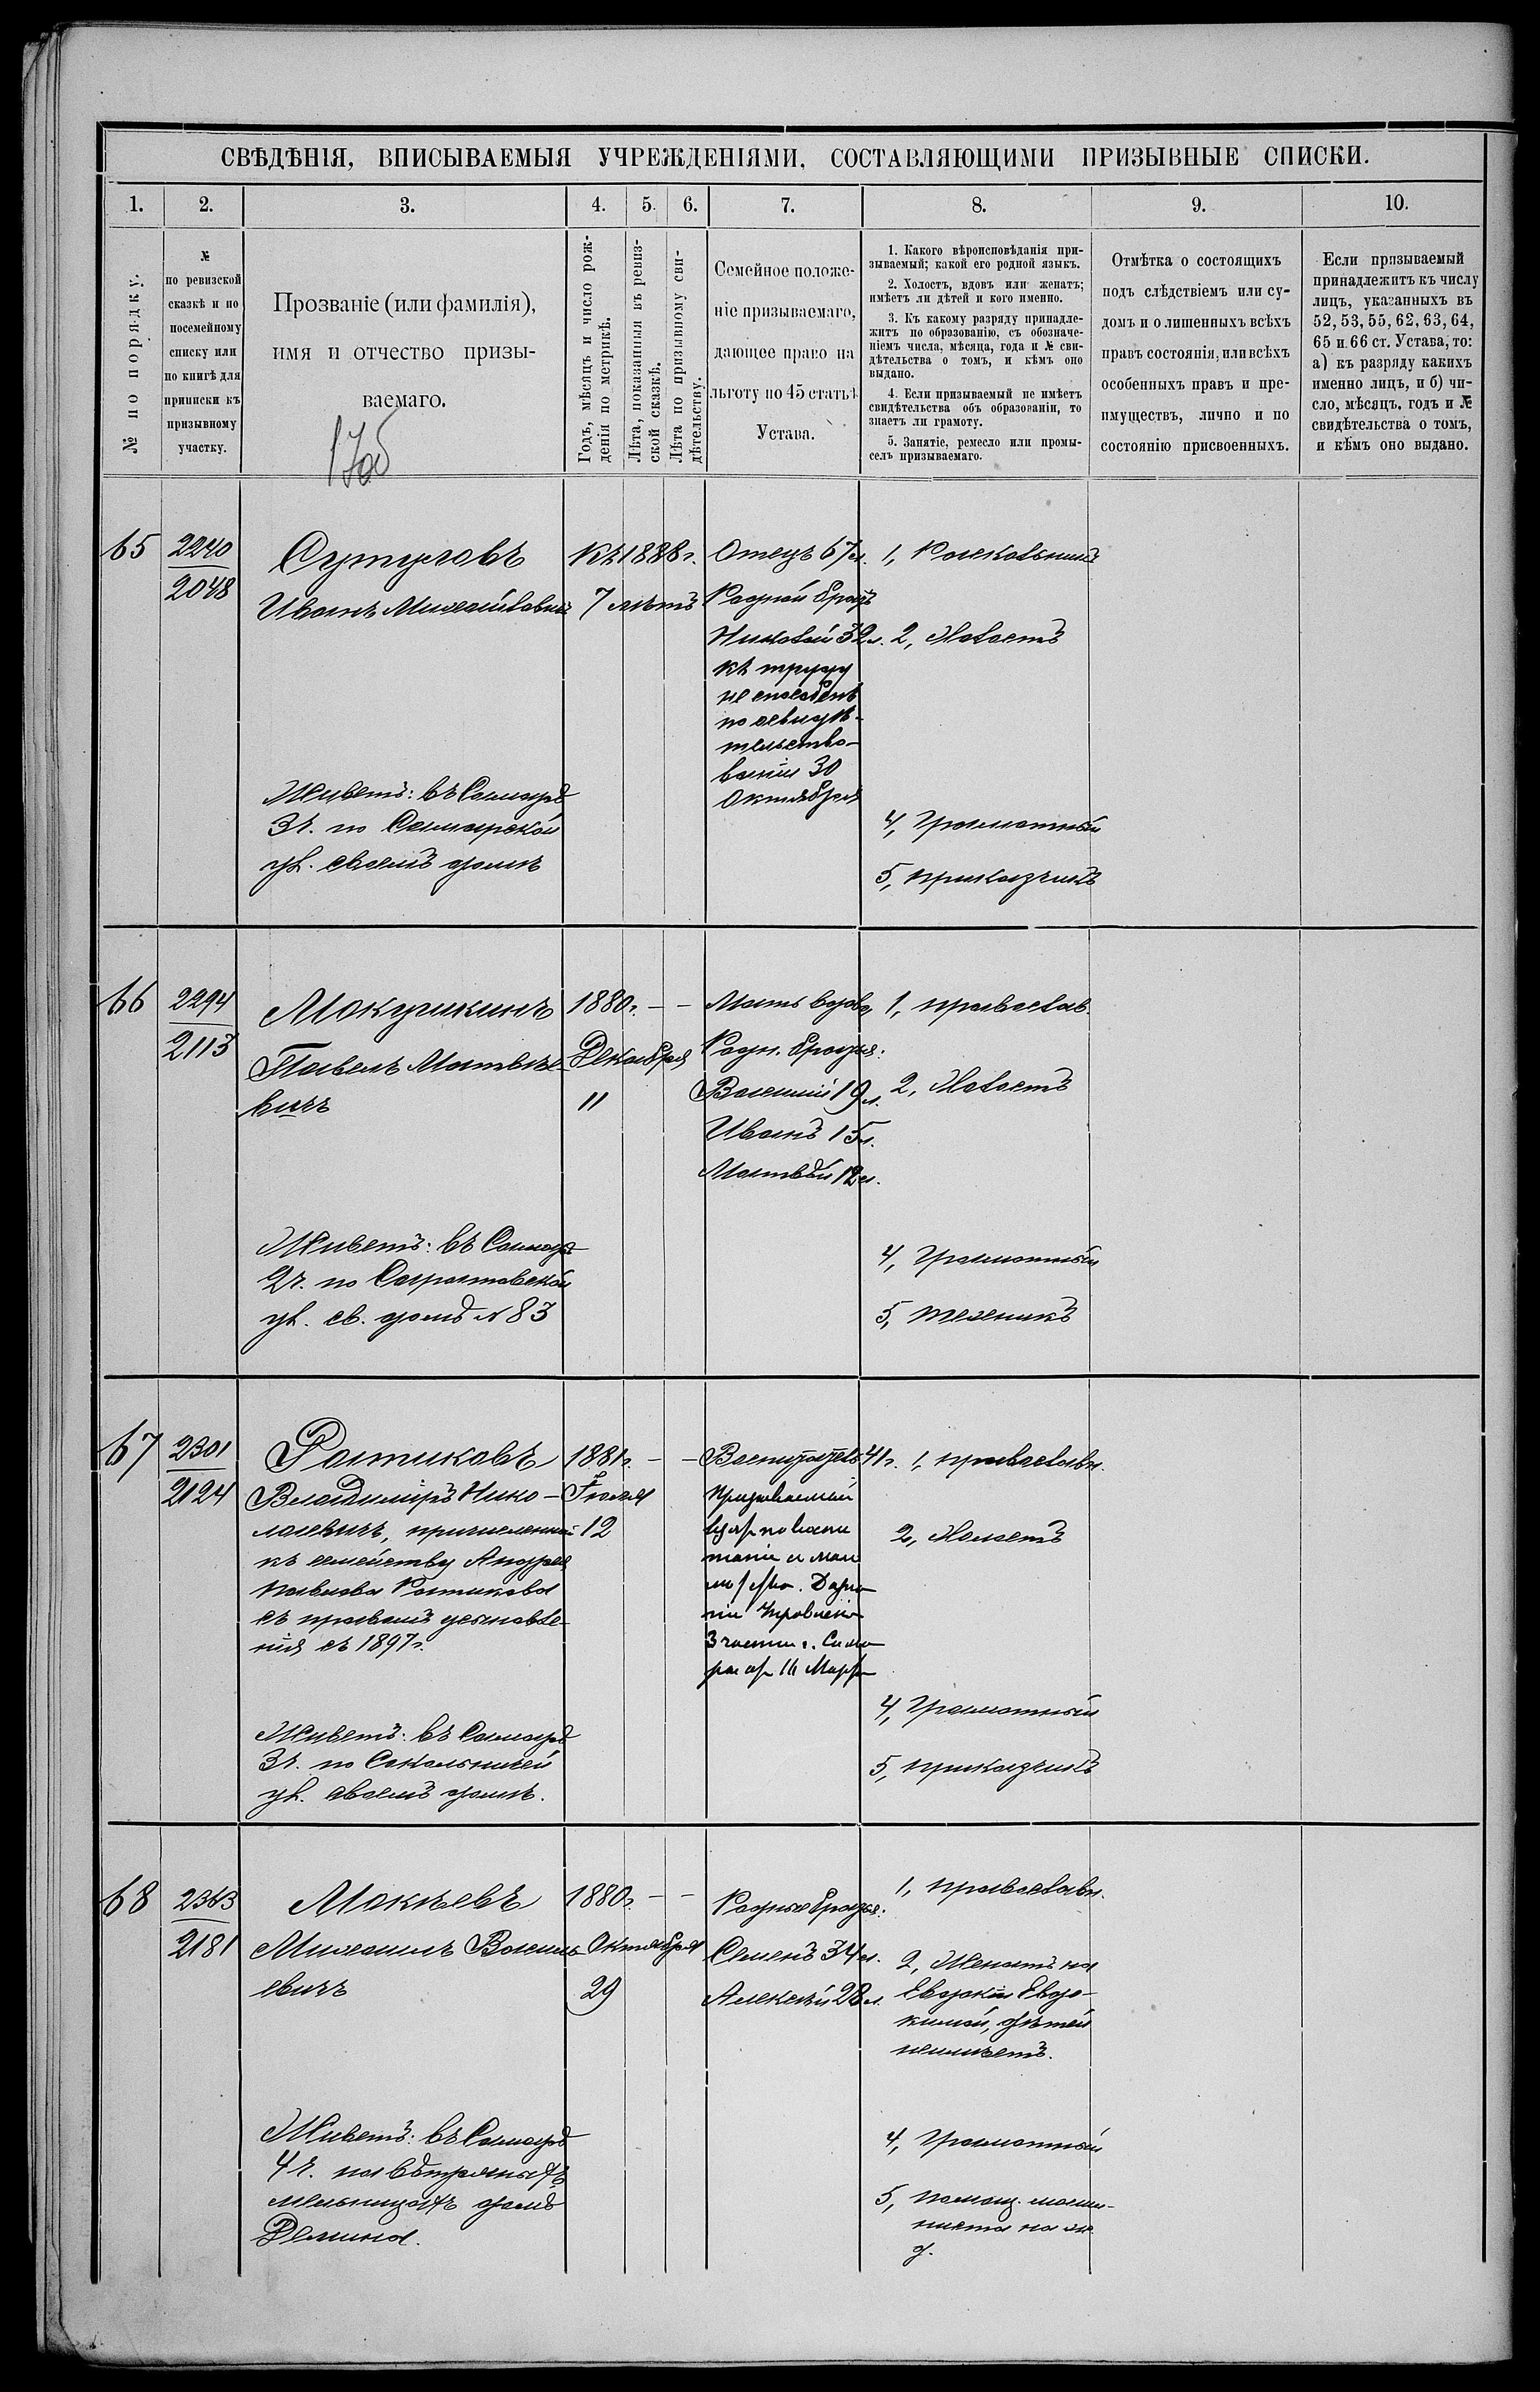 СВѢДѢНІЯ, ВПИСЫВАЕМЫЯ УЧРЕЖДЕНІЯМИ, СОСТАВЛЯЮЩИМИ ПРИЗЫВНЫЕ СПИСКИ.
1.
2.
3.
4.
5.
6.
7.
8.
9.
10.
№ по порядку.
№
по ревизской
сказкѣ и по
посемейному
списку или
по книгѣ для
приписки къ
призывному
участку.
Прозваніе (или фамилія),
имя и отчество призы-
ваемаго.
Годъ, мѣсяцъ и число рож-
денія по метрикѣ.
Лѣта, показанныя въ ревиз-
ской сказкѣ.
Лѣта по призывному сви-
дѣтельству.
Семейное положе-
ніе призываемаго,
дающее право на
льготу по 45 статьѣ
Устава.
1. Какого вѣроисповѣданія при-
зываемый; какой его родной языкъ.
2. Холостъ, вдовъ или женатъ;
имѣетъ ли дѣтей и кого именно.
3. Къ какому разряду принадле-
житъ по образованію, съ обозначе-
ніемъ числа, мѣсяца, года и № сви-
дѣтельства о томъ, и кѣмъ оно
выдано.
4. Если призываемый не имѣетъ
свидѣтельства объ образованіи, то
знаетъ ли грамоту.
5. Занятіе, ремесло или промы-
селъ призываемаго.
Отмѣтка о состоящихъ
подъ слѣдствіемъ или су-
домъ и о лишенныхъ всѣхъ
правъ состоянія, или всѣхъ
особенныхъ правъ и пре-
имуществъ, лично и по
состоянію присвоенныхъ.
Если призываемый
принадлежитъ къ числу
лицъ, указанныхъ въ
52, 53, 55, 62, 63, 64,
65 и 66 ст. Устава, то:
а) къ разряду какихъ
именно лицъ, и б) чи-
сло, мѣсяцъ, годъ и №
свидѣтельства о томъ,
и кѣмъ оно выдано.
65
2240
2048
Сутуловъ
Иванъ Михайловичъ
Живетъ: въ Самарѣ
3 ч. по Самарской
ул. своемъ домѣ
Къ 1888 г.
7 лѣтъ
Отецъ 67 л.
Родной братъ
Николай 32 л.
къ труду
не способенъ
по освидѣ-
тельство-
ванію 30
Октября
1, Раскольникъ
2, Холостъ
4, Грамотный
5, приказчикъ
66
2294
2113
Мокушкинъ
Павелъ Матвѣе-
вичъ
Живетъ: въ Самарѣ
2 ч. по Саратовской
ул. св. домѣ № 83
1880 г. — —
Декабря
"
Мать вдова
Родн. братья:
Василій 19 л.
Иванъ 15 л.
Матвѣй 12 л.
1, православ.
2, Холостъ
4, Грамотный
5,
67
2301
2124
Ратиковъ
Владиміръ Нико-
лаевичъ, причисленный
къ семейству Андрея
Павлова Ратикова
съ правомъ усыновле-
нія съ 1897 г.
Живетъ: въ Самарѣ
3 ч. по Сокольничей
ул. своемъ домѣ.
1881 г. — —
Іюля
12
41 г.
Призываемый
3 части г. Сама
1, православн.
2, Холостъ
4, Грамотный
5, приказчикъ
68
2363
2181
Мокѣевъ
Михаилъ Василь-
евичъ
Живетъ: въ Самарѣ
4 ч. на вѣтряныхъ
мельницахъ домѣ
Демина.
1880 г. — —
Октября
29
Родные братья:
Семенъ 34 л.
Алексѣй 28 л.
1, православн.
2, Женатъ на
Евдокіи Евдо-
кимой, дѣтей
неимѣетъ.
4, Грамотный
5, помощ. маши-
ниста на ж.
д.